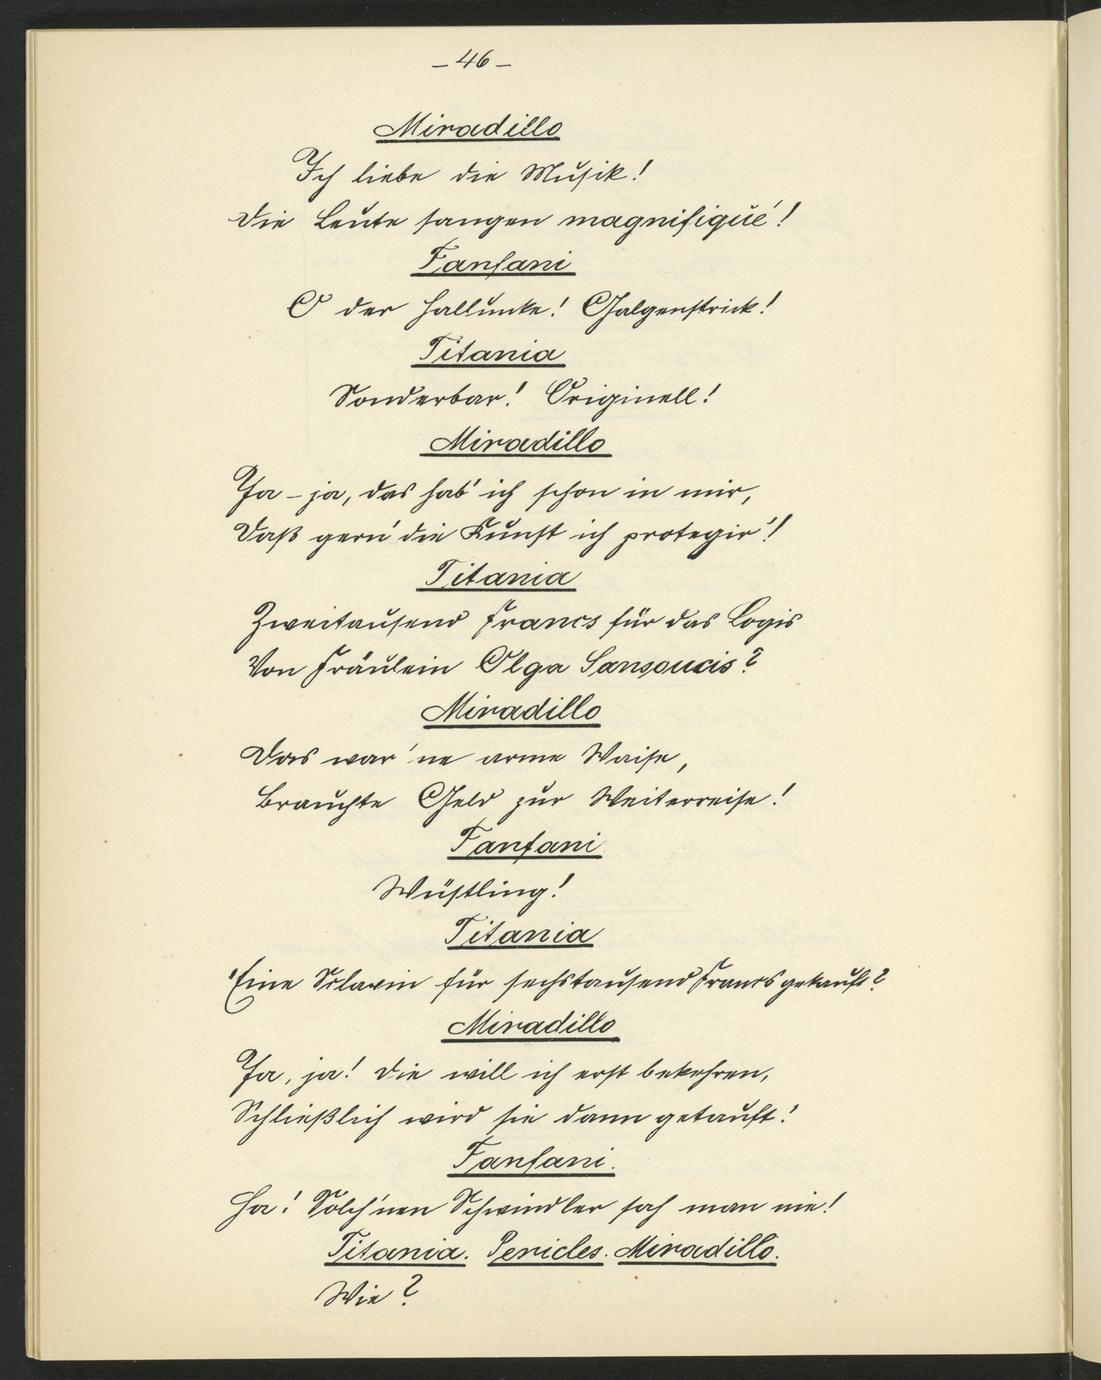 – 46 –
Miradillo
Ich liebe die Musik!
Die Leute sangen magnifique!
Fanfani
O der Hallunke! Galgenstrick!
Titania
Sonderbar! Originell!
Miradillo
Ja – ja, das hab' ich schon in mir,
Daß gern' die Kunst ich protegir'!
Titania
Zweitausend Francs für das Logis
Von Fräulein Olga Sansoucis?
Miradillo
Das war 'ne arme Waise,
Brauchte Geld zur Weiterreise!
Fanfani
Wüstling!
Titania
Eine Sclavin für sechstausend Francs gekauft?
Miradillo
Ja, ja! Die will ich erst bekehren,
Schließlich wird sie dann getauft!
Fanfani.
Ha! Solch' nen Schwindler sah man nie!
Titania. Pericles. Miradillo.
Wie?